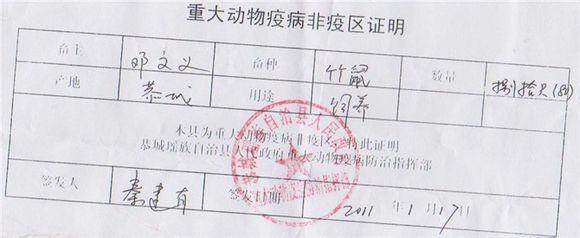 重大动物疫病非疫区证明
畜主 邓文义 畜种 竹鼠 数量 捌拾只(80)
产地 恭城 用途 饲养
本县为重大动物疫病非疫区，特此证明
恭城瑶族自治县人民政府重大动物疫病防治指挥部
签发人 秦建有 签发日期 2011年1月17日